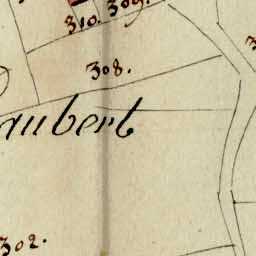 310. 309.
308.
aubert
302.